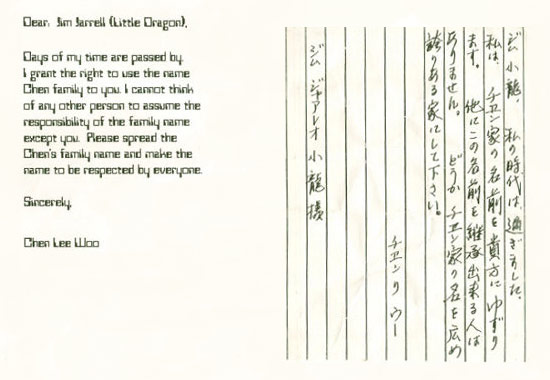 Dear, Jim Jarrell (Little Dragon),
Days of my time are passed by.
I grant the right to use the name
Chen family to you. I cannot think
of any other person to assume the
responsibility of the family name
except you. Please spread the
Chen's family name and make the
name to be respected by everyone.
Sincerely,
Chen Lee Woo
ジム 小龍、 私の時代は、過ぎました。
私は、 チヱン家の名前を貴方に ゆずり
ます。 他にこの名前を継承出来る人は
ありません。 どうか チヱン家の名を広め
誇りある家にして下さい。
チヱン リ ウー
ジム ジャアレオ 小龍様